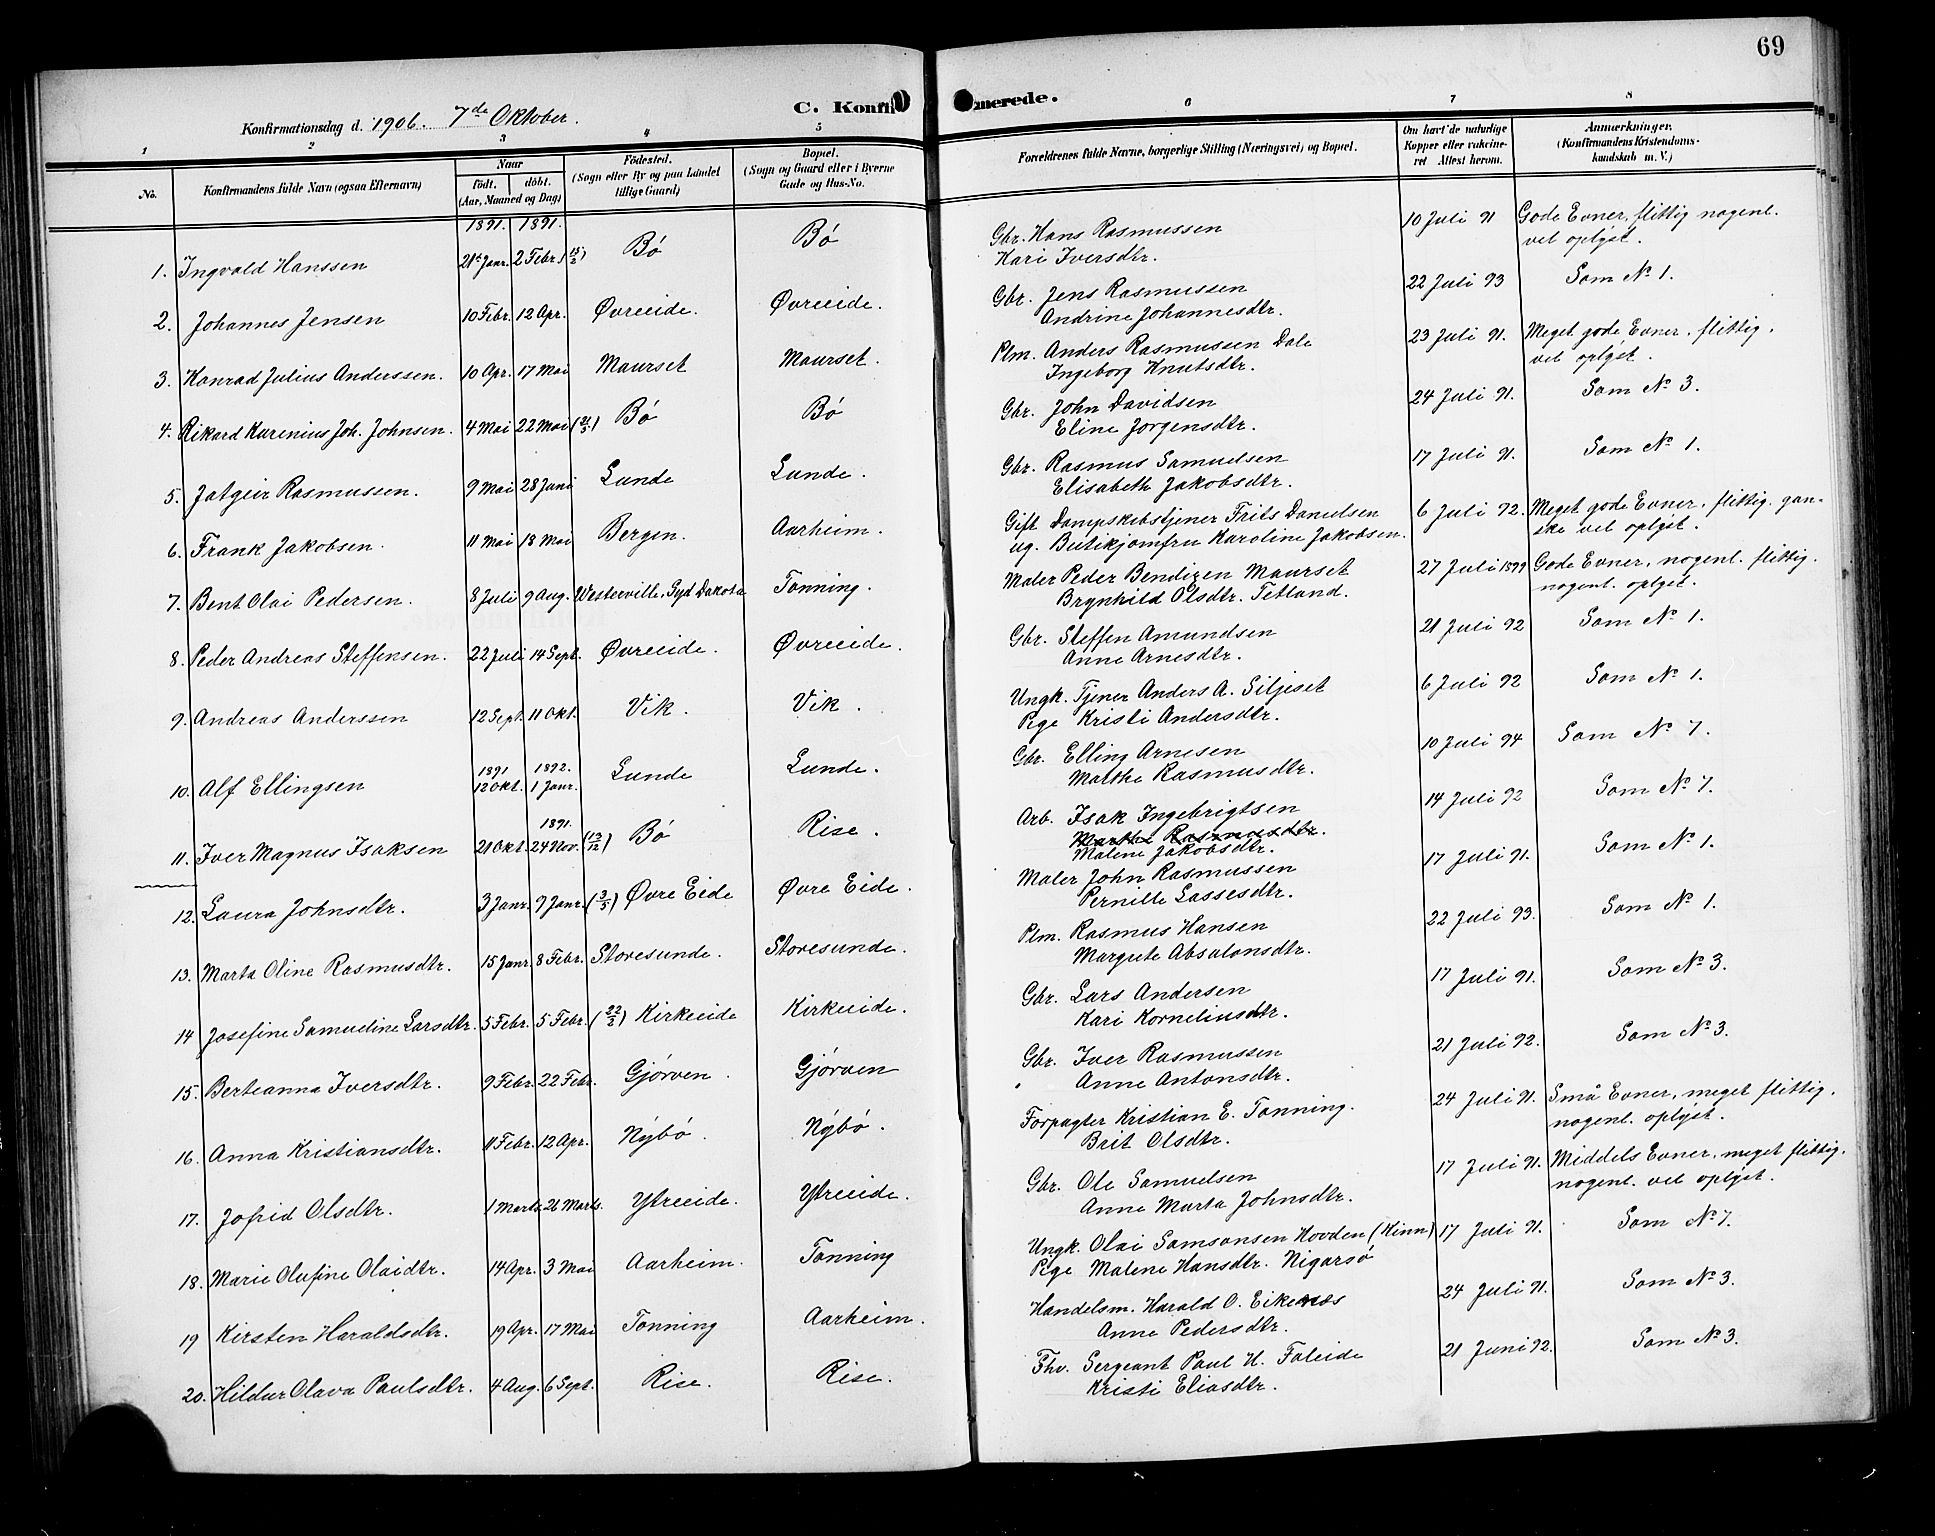 69
C. Konfirmerede.
Konfirmationsdag d. 1906. 7de Oktober.
1 2 3 4 5 6 7 8
No.
Konfirmandens fulde Navn (ogsaa Efternavn)
Naar
födt. döbt.
(Aar, Maaned og Dag)
Födested.
(Sogn eller By og paa Landet
tillige Gaard)
Bopæl.
(Sogn og Gaard eller i Byerne
Gade og Hus-No.
Forældrenes fulde Navne, borgerlige Stilling (Næringsvei) og Bopæl.
Om havt de naturlige
Kopper eller vakcine-
ret Attest herom.
Anmærkninger.
(Konfirmandens Kristendoms-
kundskab m. V.)
1891. 1891.
1. Ingvald Hanssen 21de Janr. 2 Febr. (15/2) Bö Bö Gbr. Hans Rasmussen 10 Juli 91 Gode Evner, flittig nogenl.
Kari Iversdtr. vel oplÿst.
2. Johannes Jensen 10 Febr. 12 Apr. Øvreeide. Øvreeide. Gbr. Jens Rasmussen 22 Juli 93 Som No 1.
Andrine Johannesdtr.
3. Konrad Julius Anderssen. 10 Apr. 17 Mai Maurset Maurset. Plm. Anders Rasmussen Dale 23 Juli 91. Meget gode Evner, flittig,
Ingeborg Knutsdtr. vel oplÿst.
4. Rikard Kurenius Joh. Johnsen. 4 Mai 22 Mai (31/5) Bö Bö Gbr. John Davidsen 24 Juli 91. Som No 3.
Eline Jörgensdtr.
5. Jatgeir Rasmussen. 9 Mai 28 Juni Lunde Lunde. Gbr. Rasmus Samuelsen 17 Juli 91. Som No 1.
Elisabeth Jakobsdtr.
6. Frank Jakobsen. 11 Mai 18 Mai Bergen. Aarheim. Gift Dampskibstjener Frits Danielsen 6 Juli 92. Meget gode Evner, flittig, gan-
ug. Butikjomfru Karoline Jakobsen. ske vel oplÿst.
7. Bent Olai Pedersen. 8 Juli 9 Aug. Westerville, Syd Dakota Tonning. Maler Peder Bendixen Maurset 27 Juli 1899 Gode Evner, nogenl. flittig.
Brynhild Olsdtr. Tetland. nogenl. oplÿst.
8. Peder Andreas Steffensen. 22 Juli 14 Sept. Øvreeide. Øvreeide. Gbr. Steffen Amundsen 21 Juli 92 Som No 1.
Anne Arnesdtr.
9. Andreas Anderssen 12 Sept. 11 Okt. Vik. Vik. Ungk. Tjener Anders A. Siljeset 6 Juli 92 Som No 1.
Pige Kristi Andersdtr.
1891 1892.
10. Alf Ellingsen 12 Okt. 1 Janr. Lunde Lunde. Gbr. Elling Arnesen 10 Juli 94 Som No 7.
Marthe Rasmusdtr.
1891.
11. Iver Magnus Isaksen 21 Okt. 24 Nov. (13/12) Bö Rise. Arb. Isak Ingebrigtsen 14 Juli 92 Som No 7.
Marthe Rasmusdtr.
Malene Jakobsdtr.
12. Laura Johnsdtr. 3 Janr. 7 Janr. (3/5) Øvre Eide Øvre Eide. Maler John Rasmussen 17 Juli 91. Som No 1.
Pernille Lassesdtr.
13. Marta Oline Rasmusdtr. 15 Janr. 8 Febr. Storesunde. Storesunde. Plm. Rasmus Hansen 22 Juli 93. Som No 1.
Margrete Absalonsdtr.
14 Josefine Samueline Larsdtr. 5 Febr. 5 Febr. (22/2) Kirkeeide Kirkeeide. Gbr. Lars Andersen 17 Juli 91. Som No 3.
Kari Korneliusdtr.
15. Berteanna Iversdtr. 9 Febr. 22 Febr. Gjörven. Gjörven Gbr. Iver Rasmussen 21 Juli 92. Som No 3.
Anne Antonsdtr.
16. Anna Kristiansdtr. 11 Febr. 12 Apr. Nÿbö. Nÿbö. Forpagter Kristian E. Tonning. 24 Juli 91. Små Evner, meget flittig,
Brit Olsdtr. nogenl. oplÿst.
17. Jofrid Olsdtr. 1 Marts 26 Marts. Ytreeide. Ytreeide. Gbr. Ole Samuelsen 17 Juli 91. Middels Evner, meget flittig,
Anne Marta Johnsdtr. nogenl. vel oplÿst.
18. Marie Olufine Olaidtr. 14 Apr. 3 Mai Aarheim. Tonning Ungk. Olai Samsonsen Hovden (Kinn) 17 Juli 91. Som No 7.
Pige Malene Hansdtr. Nigarsö
19 Kirsten Haraldsdtr. 19 Apr. 17 Mai Tonning Aarheim. Handelsm. Harald O. Eikenæs 24 Juli 91. Som No 3.
Anne Pedersdtr.
20. Hildur Olava Paulsdtr. 4 Aug. 6 Sept. Rise. Rise. Fhv. Sergeant Paul H. Faleide 21 Juni 92. Som No 3.
Kristi Eliasdtr.